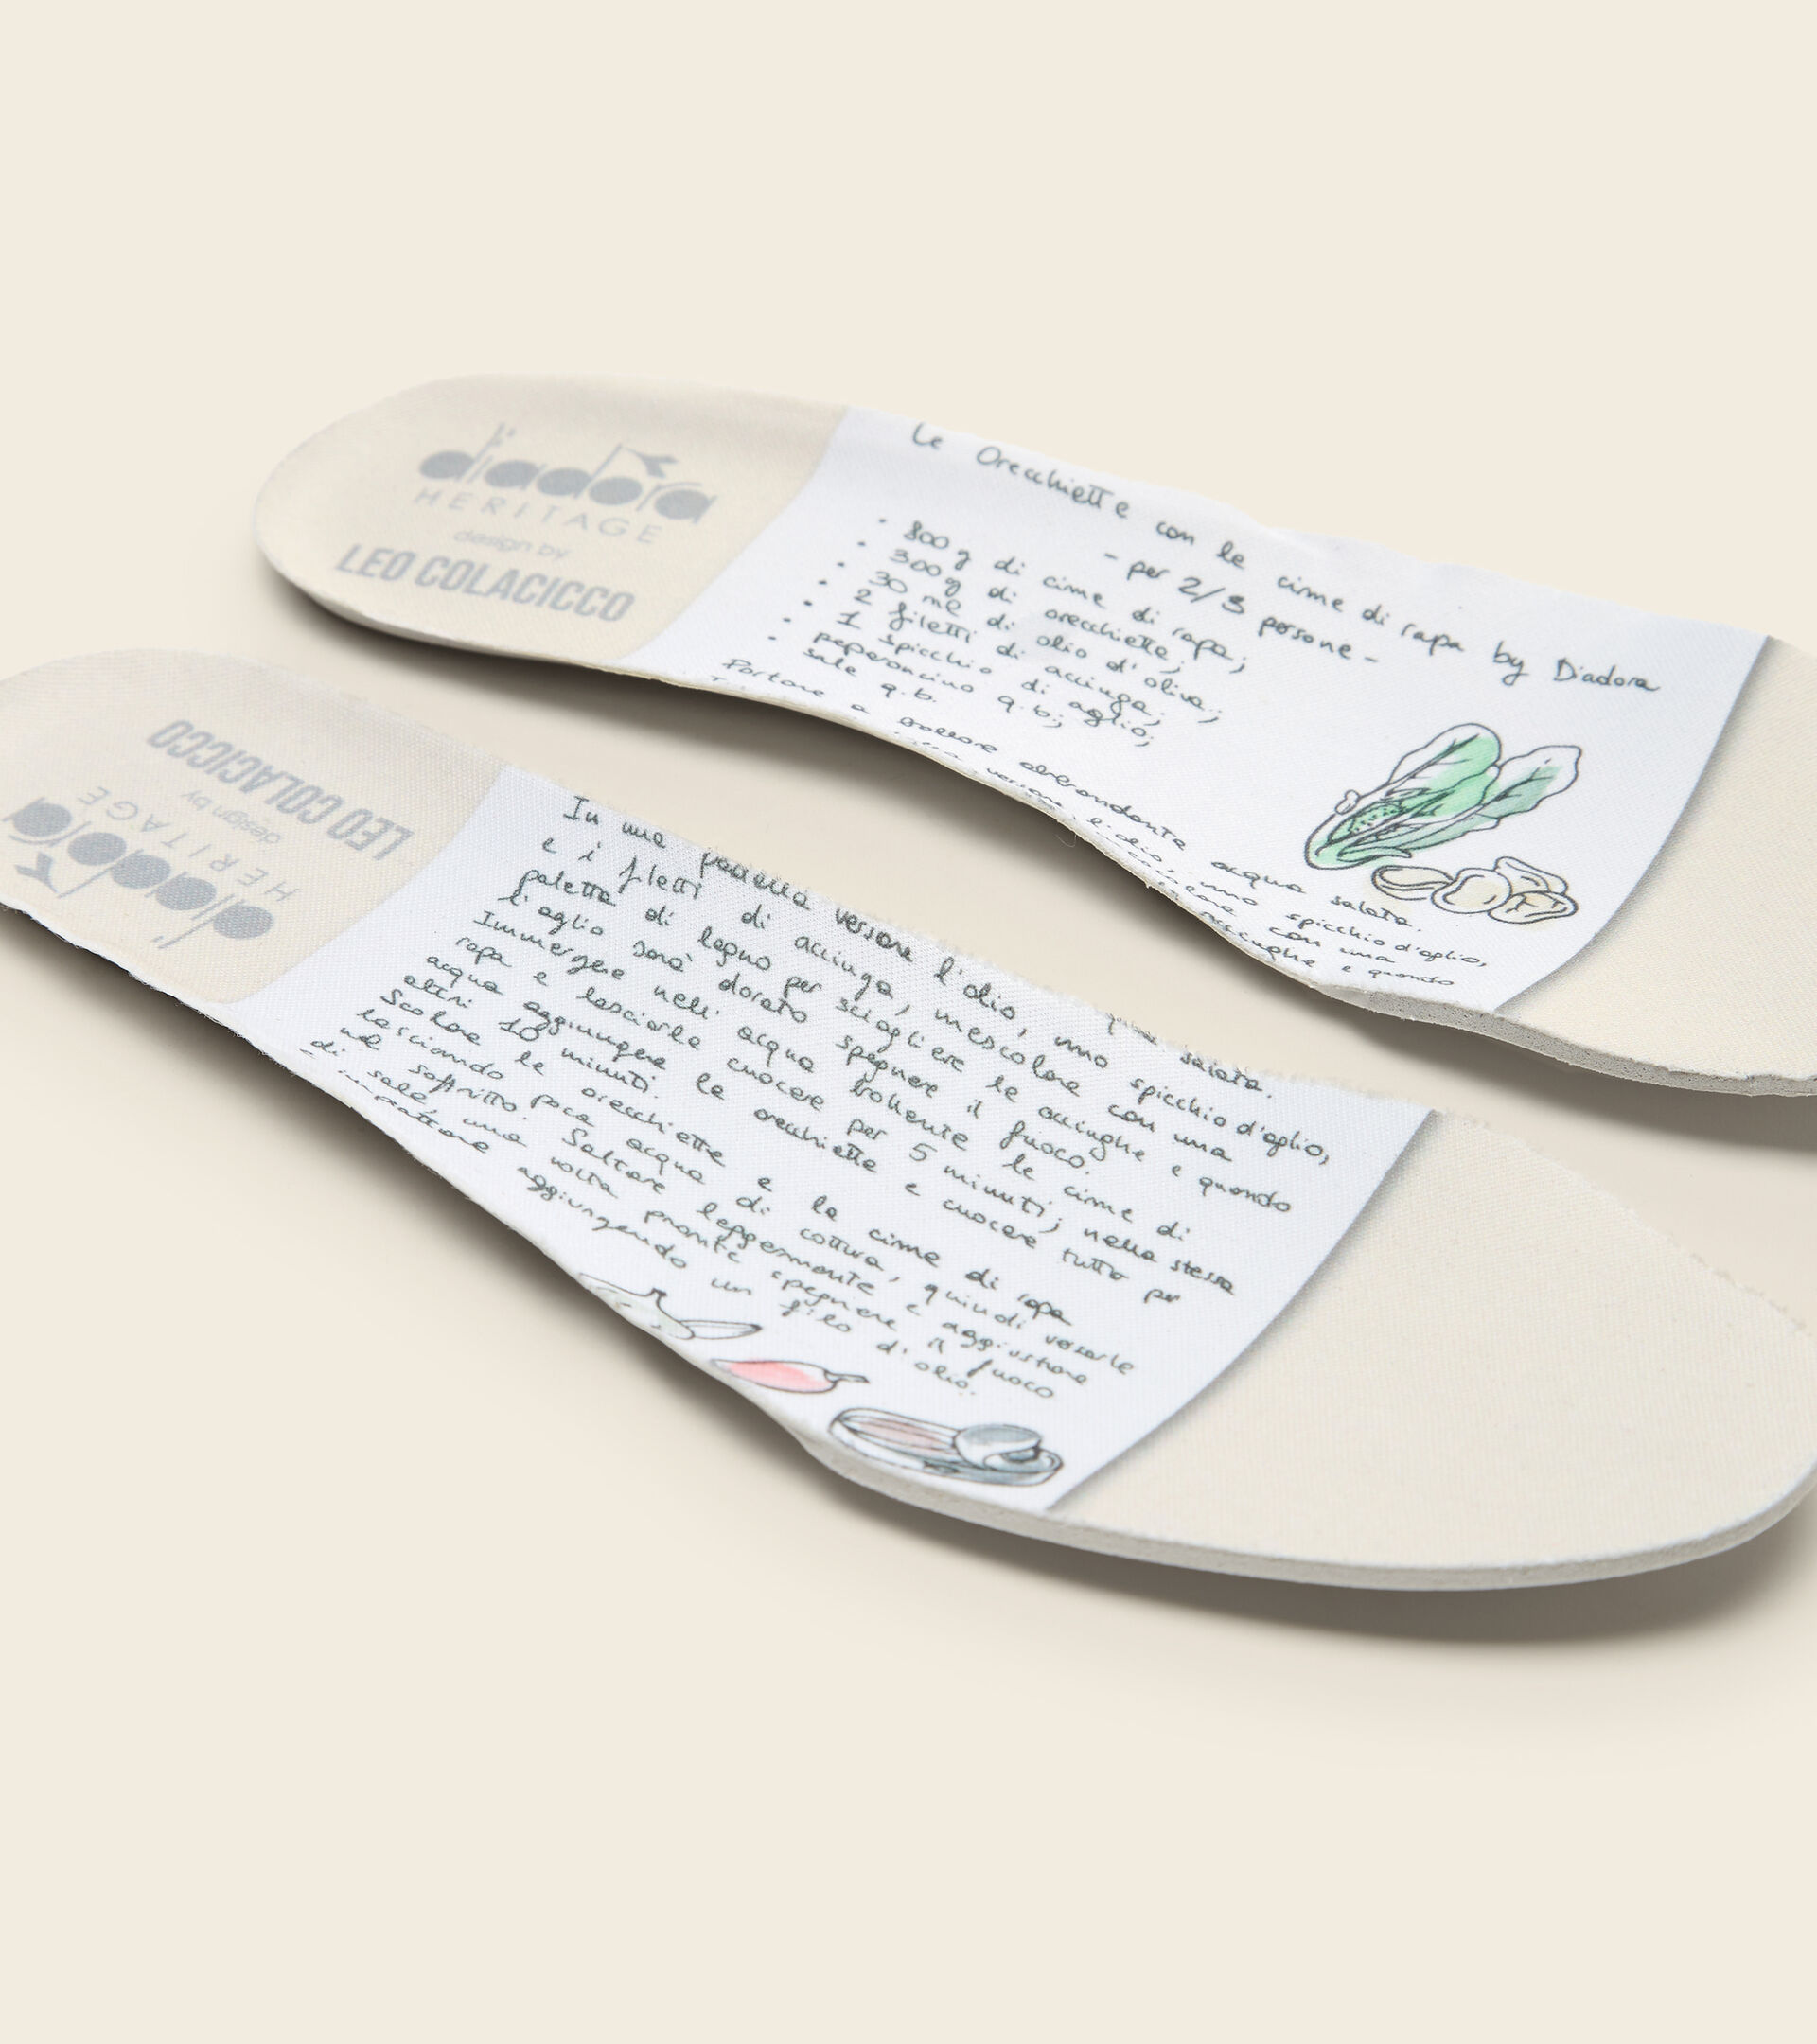 diadora
HERITAGE
design by
LEO COLACICCO
Le Orecchiette con le cime di rapa by Diadora
- per 2/3 persone -
• 800 g di cime di rapa;
• 300 g di orecchiette;
• 30 ml di olio d'oliva;
• 2 filetti di acciuga;
• 1 spicchio di aglio;
• peperoncino q.b.;
• sale q.b.
Portare a bollore abbondante acqua salata.
versare l'olio, uno spicchio d'aglio,
con una
acciughe e quando
diadora
HERITAGE
design by
LEO COLACICCO
salata.
In una padella versare l'olio, uno spicchio d'aglio,
e i filetti di acciuga, mescolare con una
paletta di legno per sciogliere le acciughe e quando
l'aglio sarà dorato spegnere il fuoco.
Immergere nell'acqua bollente le cime di
rapa e lasciarle cuocere per 5 minuti; nella stessa
acqua aggiungere le orecchiette e cuocere tutto per
altri 10 minuti.
Scolare le orecchiette e le cime di rapa
lasciando poca acqua di cottura, quindi versarle
nel soffritto. Saltare leggermente e aggiustare
di sale, una volta pronte spegnere il fuoco
impiattare aggiungendo un filo d'olio.